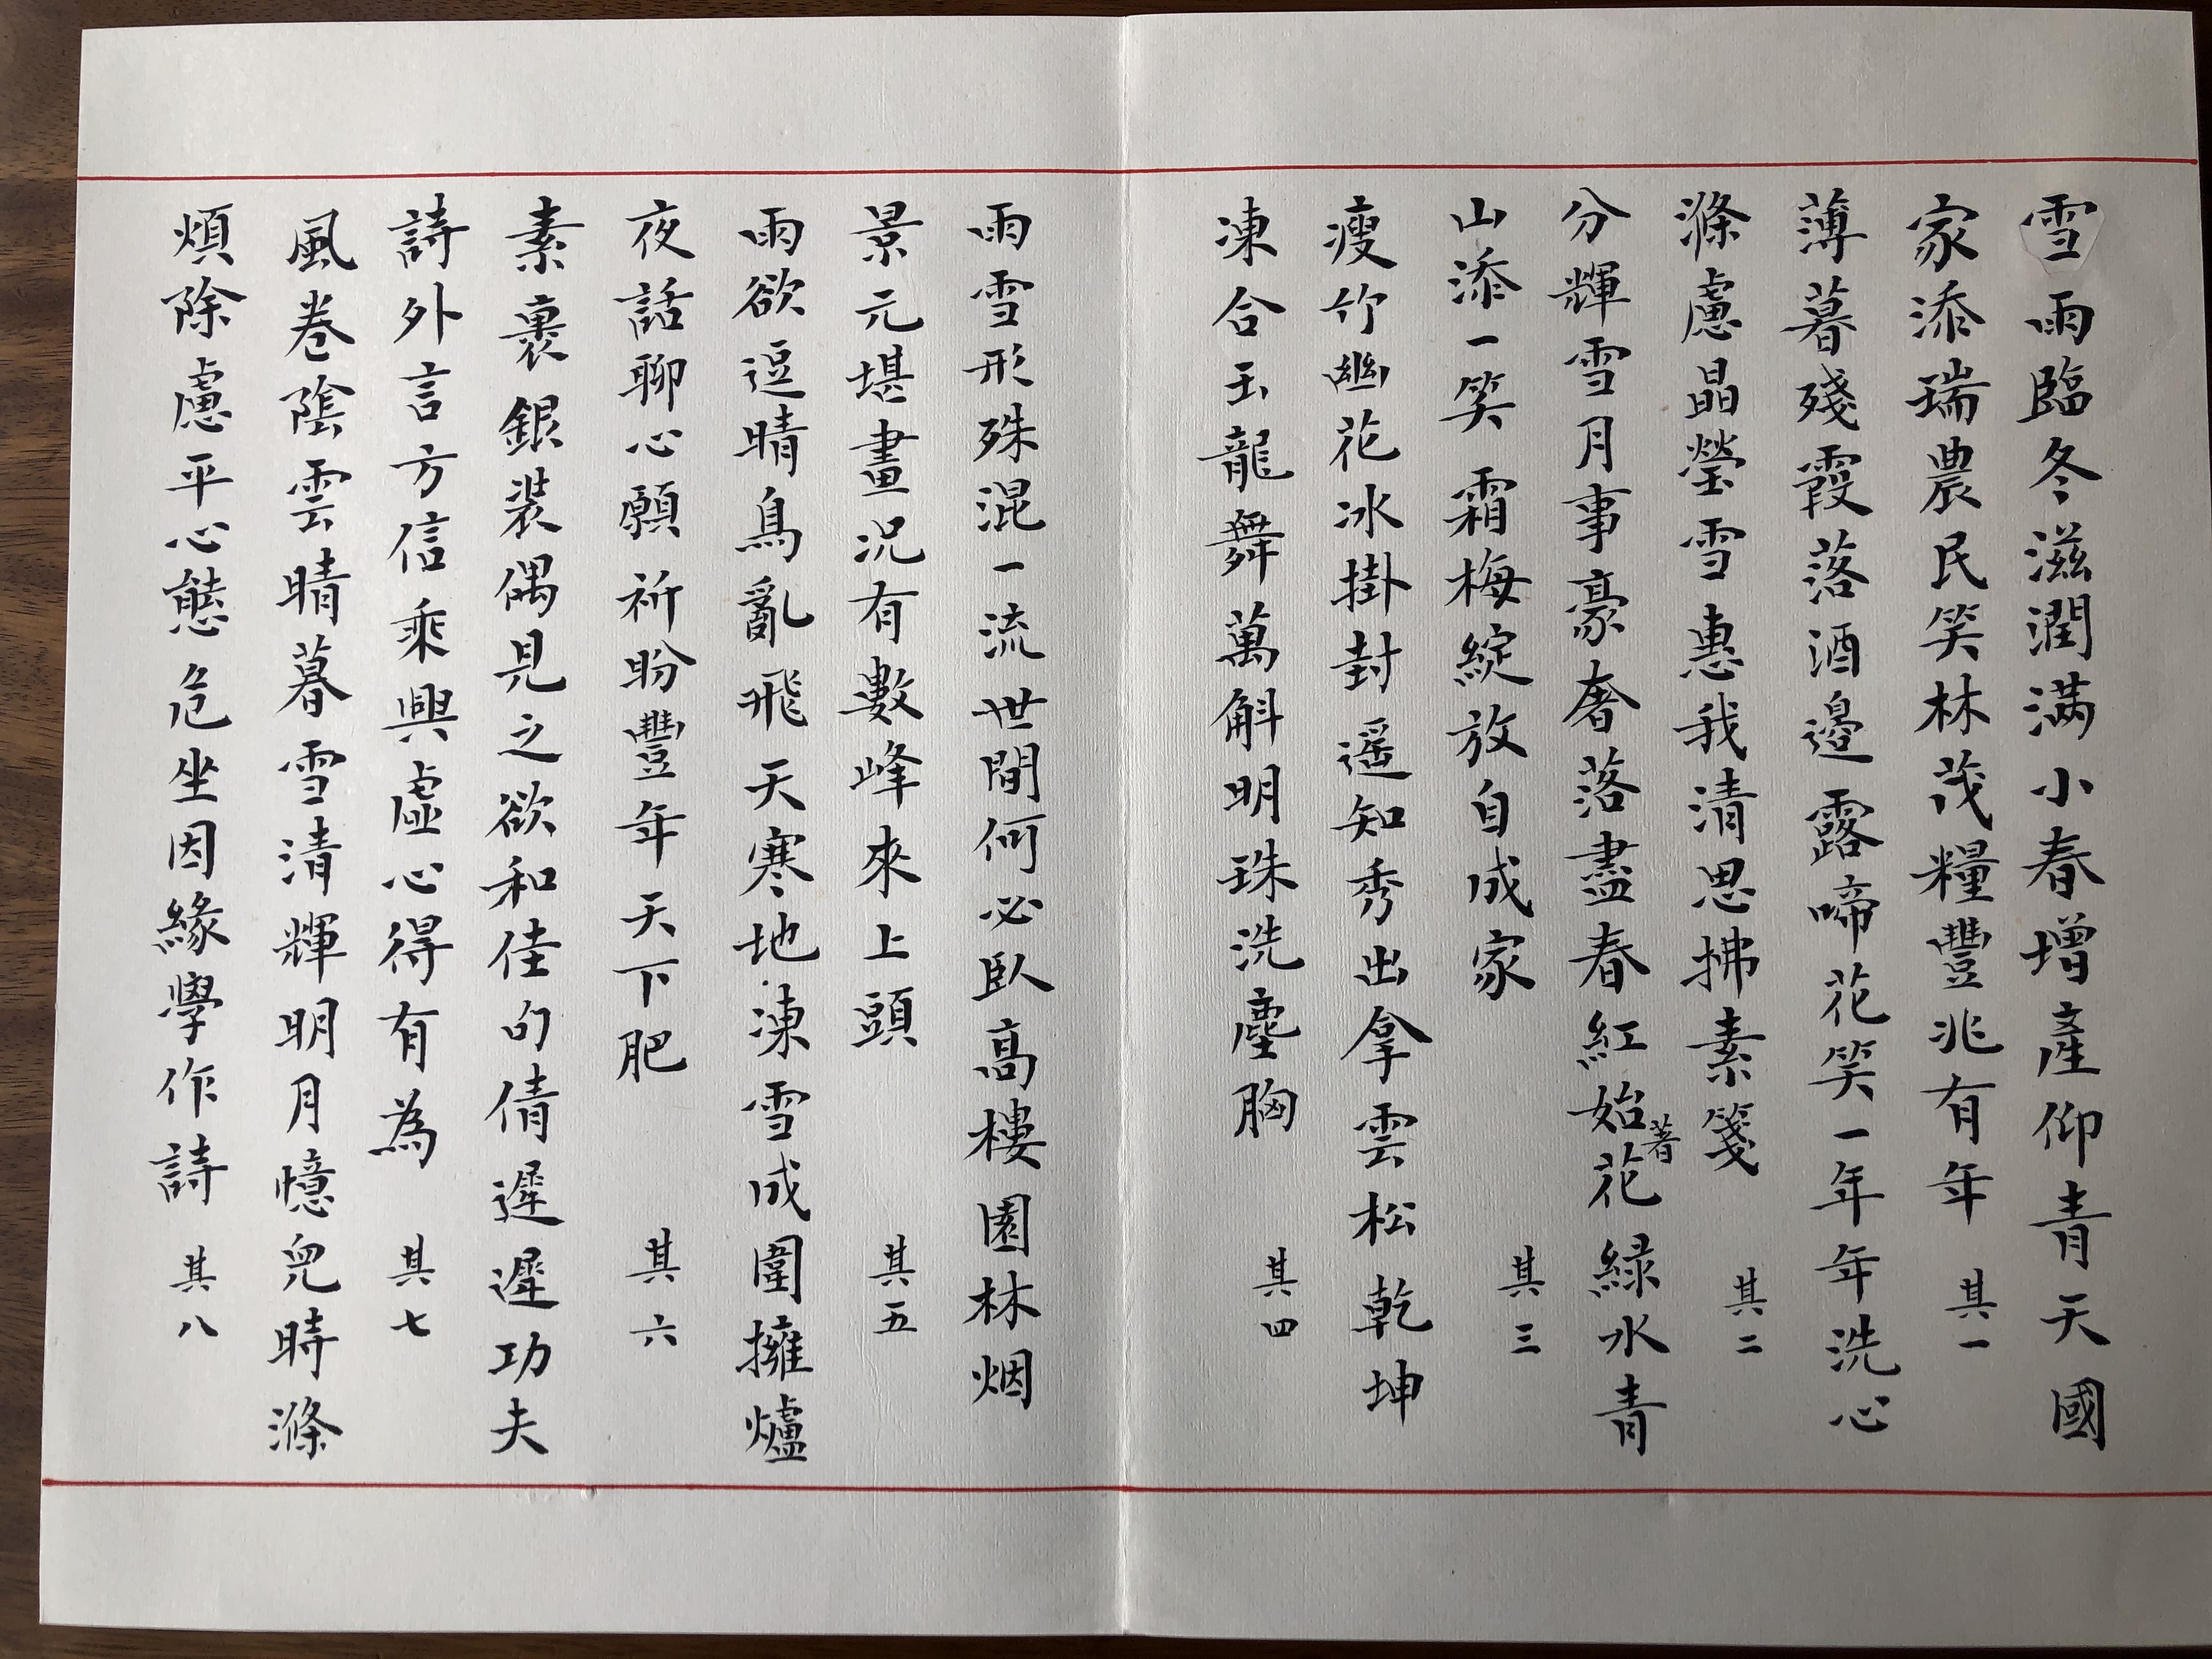 雪雨臨冬滋潤满小春增產仰青天國
家添瑞農民笑林茂糧豐兆有年 其一
薄暮殘霞落酒邊露啼花笑一年年洗心
滌慮晶瑩雪惠我清思拂素箋 其二
分輝雪月事豪奢落盡春紅始著花緑水青
山添一笑霜梅綻放自成家 其三
瘦竹幽花冰掛封遥知秀出拿雲松乾坤
凍合玉龍舞萬斛明珠洗塵胸 其四
雨雪形殊混一流世間何必臥高樓園林烟
景元堪畫况有數峰來上頭 其五
雨欲逗晴鳥亂飛天寒地凍雪成圍擁爐
夜話聊心願祈盼豐年天下肥 其六
素裹銀装偶見之欲和佳句倩遲遲功夫
詩外言方信乘興虚心得有為 其七
風卷陰雲晴暮雪清輝明月憶兒時滌
煩除慮平心態危坐因緣學作詩 其八